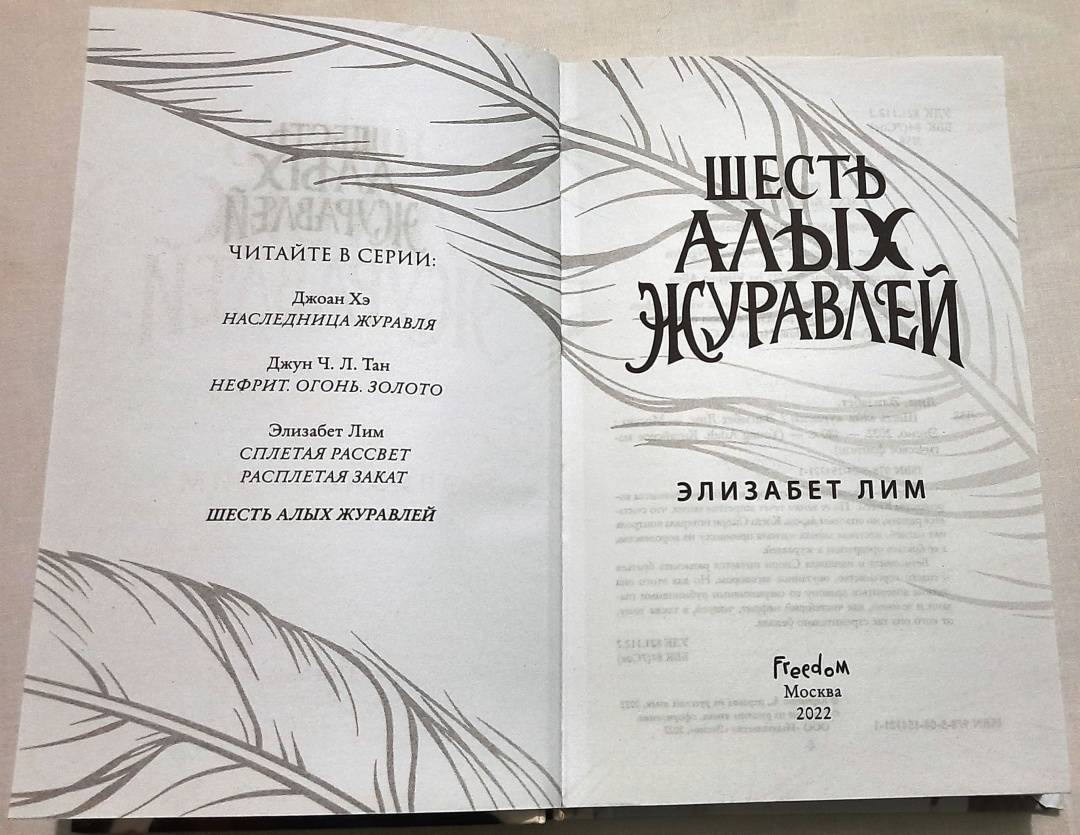 ЧИТАЙТЕ В СЕРИИ:
Джоан Хэ
НАСЛЕДНИЦА ЖУРАВЛЯ
Джун Ч. Л. Тан
НЕФРИТ. ОГОНЬ. ЗОЛОТО
Элизабет Лим
СПЛЕТАЯ РАССВЕТ
РАСПЛЕТАЯ ЗАКАТ
ШЕСТЬ АЛЫХ ЖУРАВЛЕЙ
ШЕСТЬ
АЛЫХ
ЖУРАВЛЕЙ
ЭЛИЗАБЕТ ЛИМ
Freedom
Москва
2022